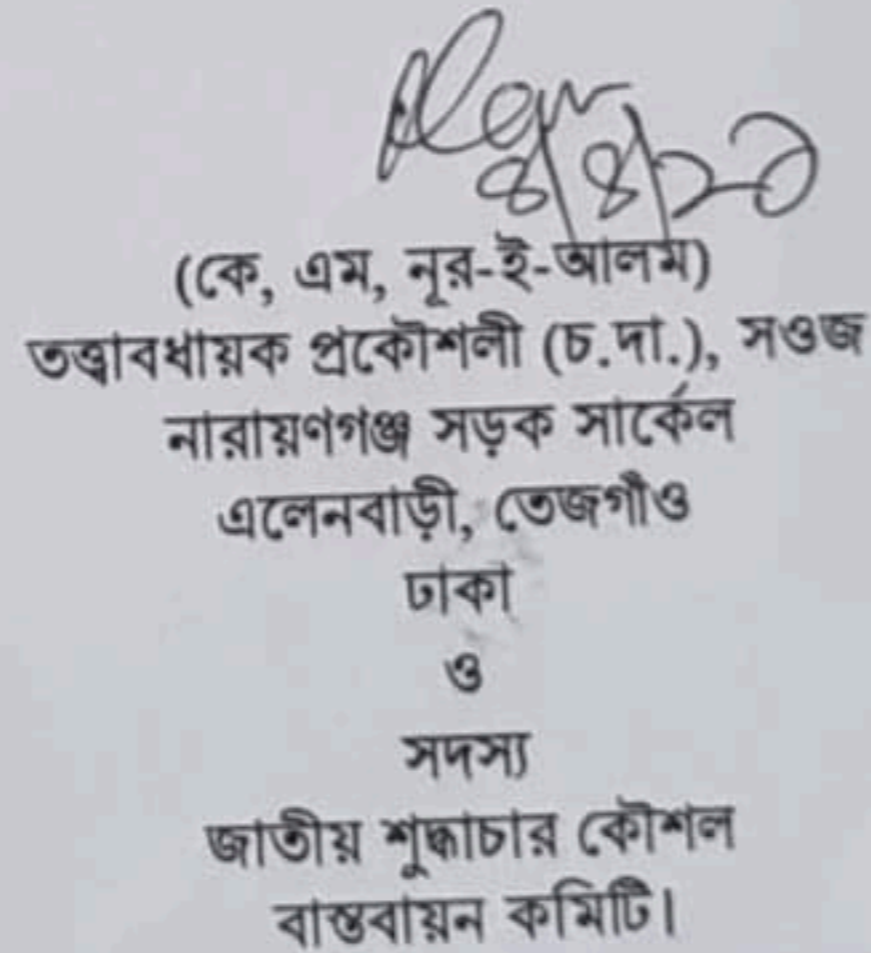 (কে, এম, নূর-ই-আলম)
তত্ত্বাবধায়ক প্রকৌশলী (চ.দা.), সওজ
নারায়ণগঞ্জ সড়ক সার্কেল
এলেনবাড়ী, তেজগাঁও
ঢাকা
ও
সদস্য
জাতীয় শুদ্ধাচার কৌশল
বাস্তবায়ন কমিটি।